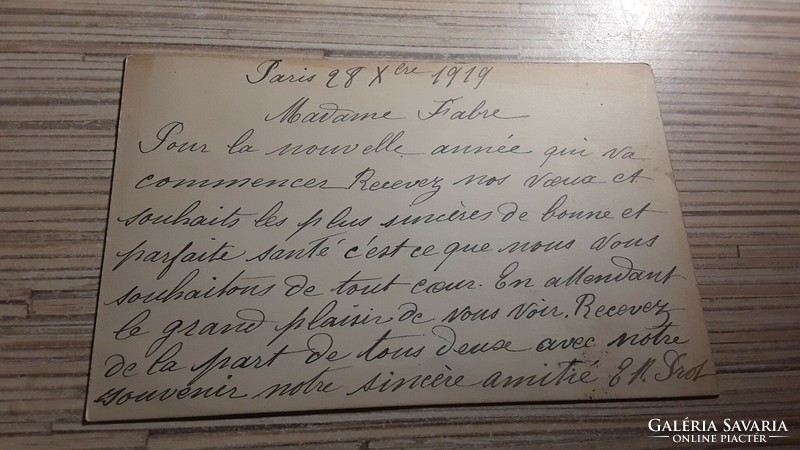 Paris 28 Xbre 1919
Madame Fabre
Pour la nouvelle année qui va
commencer Recevez nos vœux et
souhaits les plus sincères de bonne et
parfaite santé c'est ce que nous vous
souhaitons de tout cœur. En attendant
le grand plaisir de vous voir. Recevez
de la part de tous deux avec notre
souvenir notre sincère amitié
GALÉRIA SAVARIA
ONLINE PIACTÉR